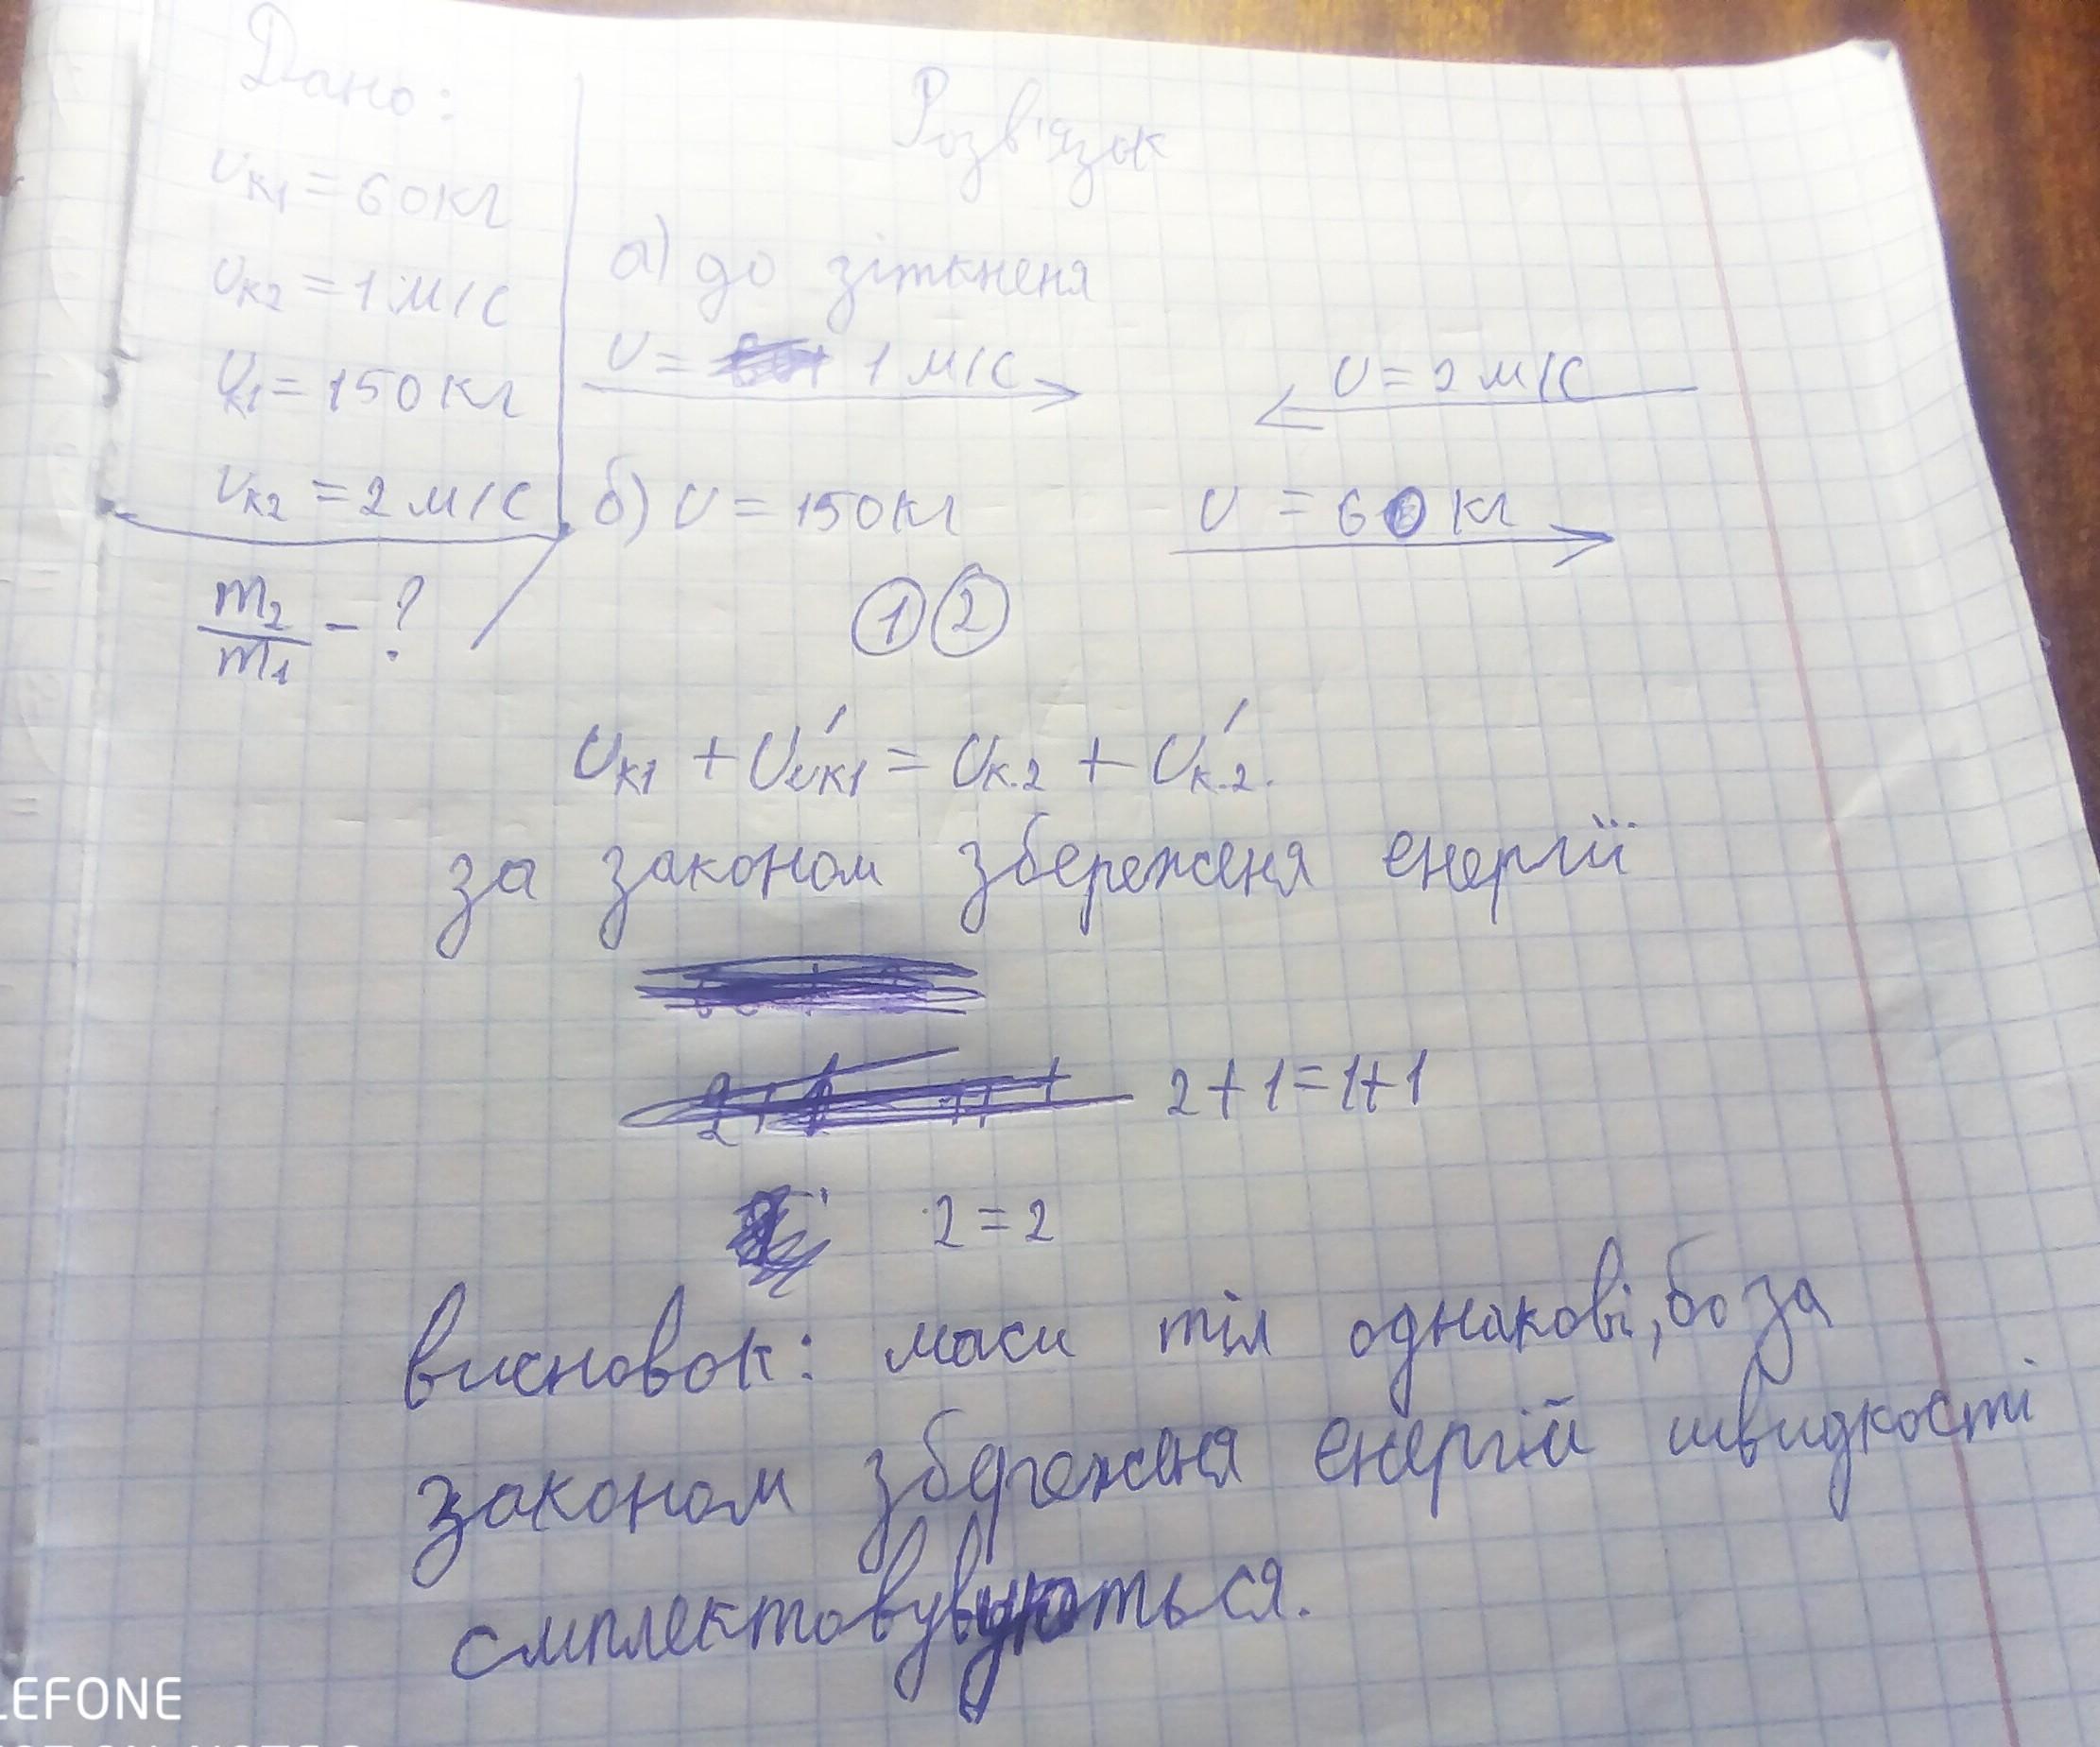 Дано:
υк1 = 60 кг
υк2 = 1 м/с
υк1 = 150 кг
υк2 = 2 м/с
m2/m1 - ?
Розв'язок
а) до зіткненя
υ = 1 м/с υ = 2 м/с
б) υ = 150 кг υ = 60 кг
1 2
υк1 + υ'к1 = υк.2 + υ'к.2.
за законом збереженя енергії
2+1=1+1
2=2
висновок: маси тіл однакові, бо за
законом збереженя енергій швидкості
LEFONE